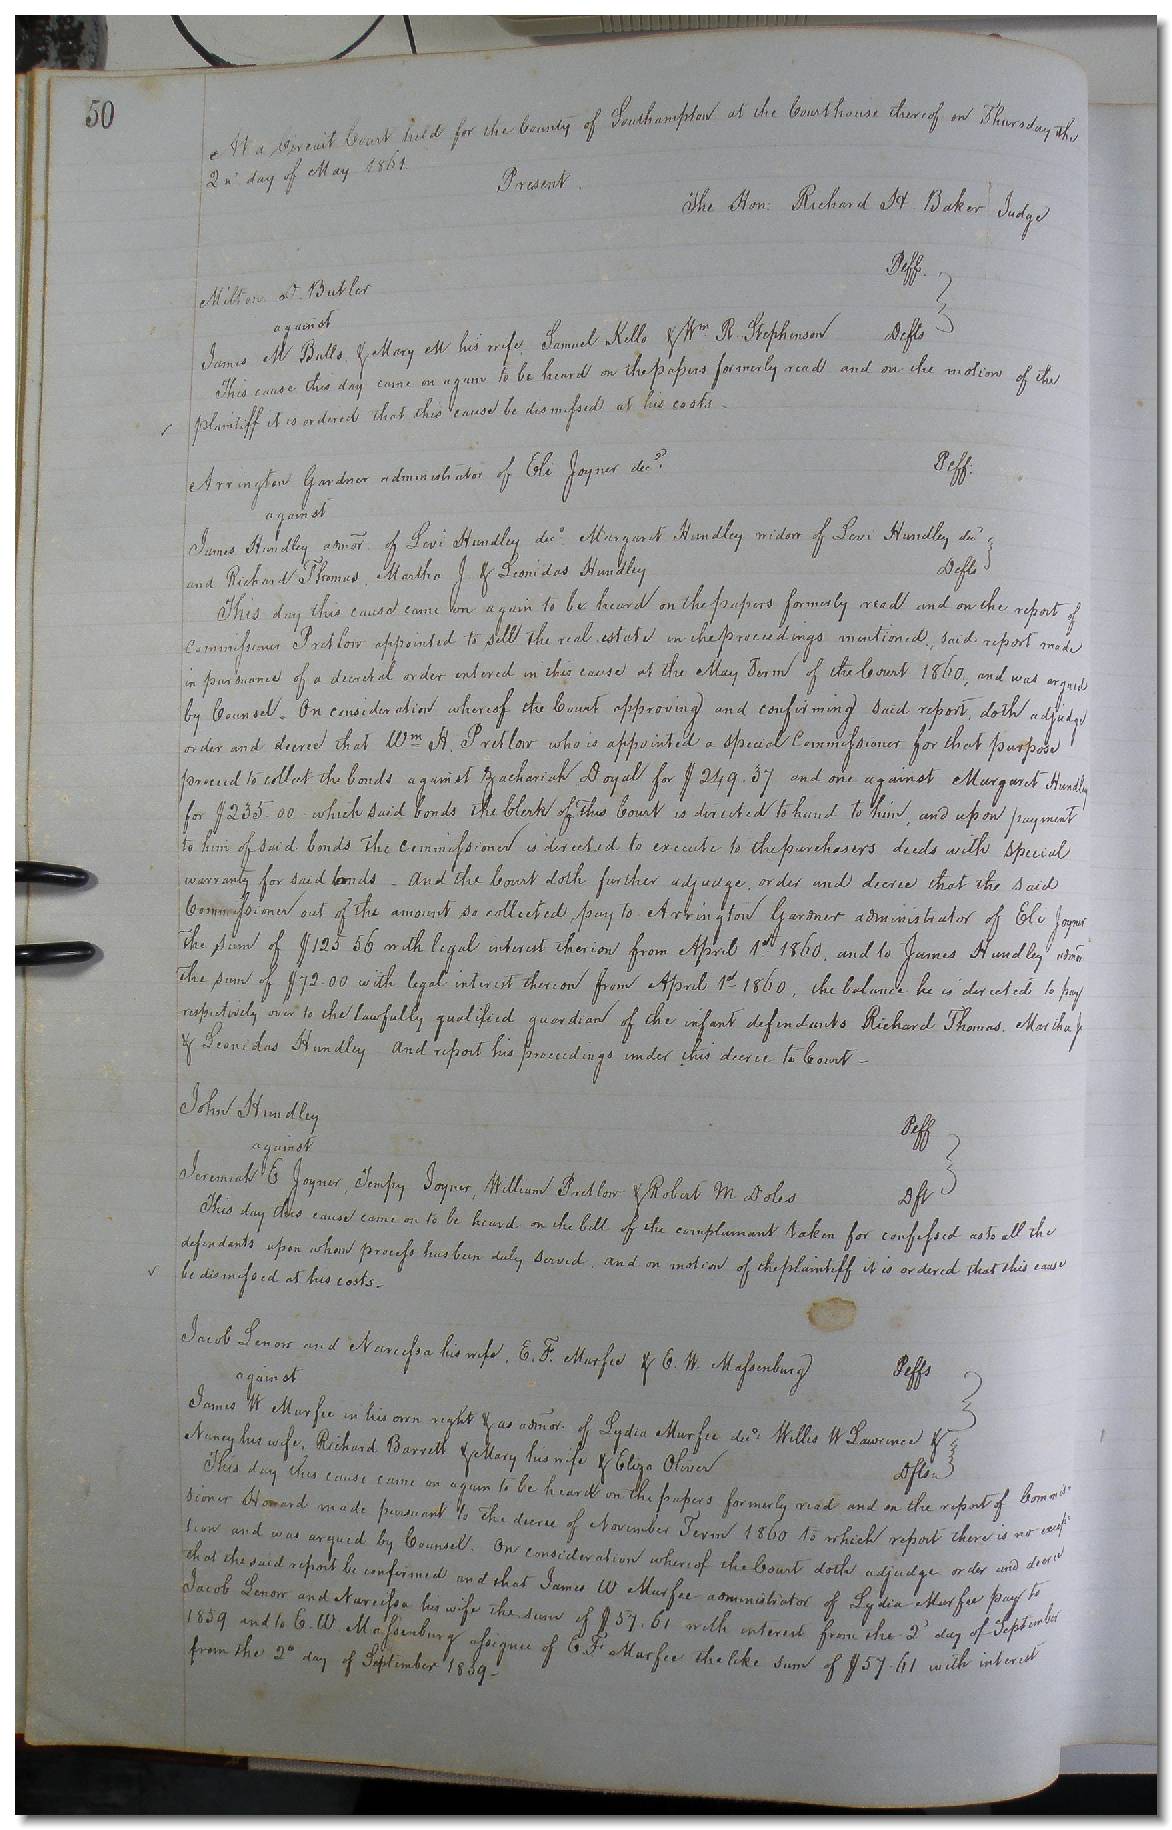 50
At a Circuit Court held for the County of Southampton at the Courthouse thereof on Thursday the
2nd day of May 1861.
Present.
The Hon: Richard H Baker Judge
Milton D. Butler Plff.
against
James M Butts, & Mary M his wife, Samuel Kello & Wm R Stephenson Defts
This cause this day came on again to be heard on the papers formerly read and on the motion of the
plaintiff it is ordered that this cause be dismissed at his costs.
Arrington Gardner administrator of Eli Joyner decd. Plff.
against
James Hundley admor. of Levi Hundley decd. Margaret Hundley widow of Levi Hundley decd
and Richard Thomas, Martha J & Leonidas Hundley Defts
This day this cause came on again to be heard on the papers formerly read and on the report of
Commissioner Pretlow appointed to sell the real estate in the proceedings mentioned, said report made
in pursuance of a decretal order entered in this cause at the May Term of the Court 1860, and was argued
by Counsel. On consideration whereof the Court approving and confirming said report, doth adjudge
order and decree that Wm H. Pretlow who is appointed a special Commissioner for that purpose
proceed to collect the bonds against Zachariah Doyal for $249.37 and one against Margaret Hundley
for $235.00 which said bonds the Clerk of this Court is directed to hand to him, and upon payment
to him of said bonds the Commissioner is directed to execute to the purchasers deeds with special
warranty for said bonds – And the Court doth further adjudge, order and decree that the said
Commissioner out of the amount so collected, pay to Arrington Gardner administrator of Eli Joyner
the sum of $125 56 with legal interest therion from April 1st 1860, and to James Hundley admor
the sum of $72.00 with legal interest thereon from April 1st 1860, the balance he is directed to pay
respectively over to the lawfully qualified guardian of the infant defendants Richard Thomas, Martha J
& Leonidas Hundley And report his proceedings under this decree to Court –
John Hundley Plff
against
Jeremiah E Joyner, Tempy Joyner, William Pretlow & Robert M Doles Dft
This day this cause came on to be heard on the bill of the complainant taken for confessed as to all the
defendants upon whom process has been duly served, and on motion of the plaintiff it is ordered that this cause
be dismissed at his costs –
Jacob Lenow and Narcissa his wife, E. F. Murfee & E. W. Massenburg Plffs
against
James W Murfee in his own right & as admor. of Lydia Murfee decd. Willis W Lawrence &
Nancy his wife, Richard Barrett & Mary his wife & Eliza Oliver Dfts
This day this cause came on again to be heard on the papers formerly read and on the report of Commis-
sioner Howard made pursuant to the decree of November Term 1860 to which report there is no excep-
tion and was argued by Counsel. On consideration whereof the Court doth adjudge order and decree
that the said report be confirmed and that James W Murfee administrator of Lydia Murfee pay to
Jacob Lenow and Narcissa his wife the sum of $57.61 with interest from the 2d day of September
1859 and to E. W. Massenburg assignee of E F Murfee the like sum of $57.61 with interest
from the 2d day of September 1859 –